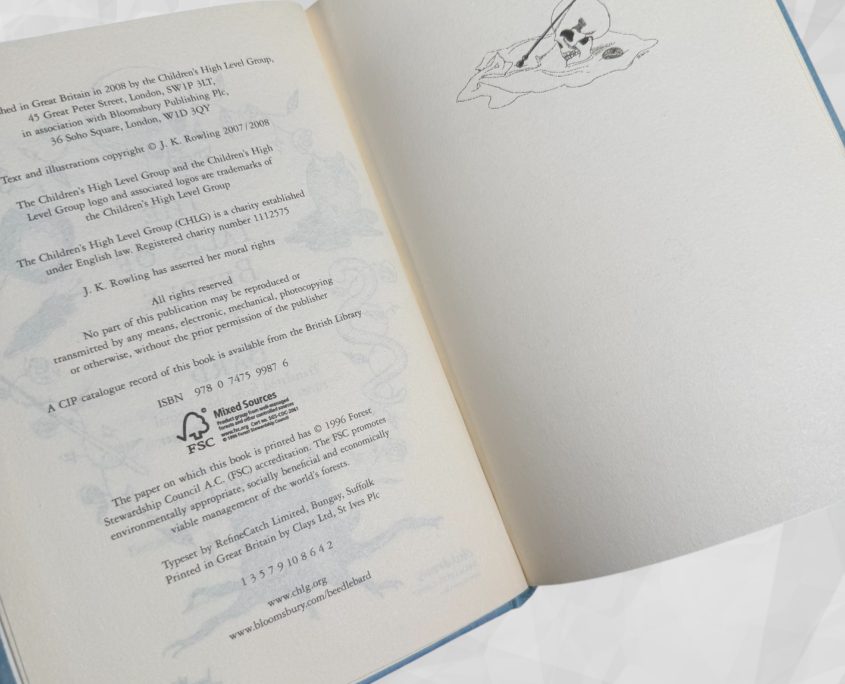 hed in Great Britain in 2008 by the Children's High Level Group,
45 Great Peter Street, London, SW1P 3LT,
in association with Bloomsbury Publishing Plc,
36 Soho Square, London, W1D 3QY
Text and illustrations copyright © J. K. Rowling 2007/2008
The Children's High Level Group and the Children's High
Level Group logo and associated logos are trademarks of
the Children's High Level Group
The Children's High Level Group (CHLG) is a charity established
under English law. Registered charity number 1112575
J. K. Rowling has asserted her moral rights
All rights reserved
No part of this publication may be reproduced or
transmitted by any means, electronic, mechanical, photocopying
or otherwise, without the prior permission of the publisher
A CIP catalogue record of this book is available from the British Library
ISBN 978 0 7475 9987 6
Mixed Sources
Product group from well-managed
forests and other controlled sources
www.fsc.org Cert no. SGS-COC-2061
© 1996 Forest Stewardship Council
FSC
The paper on which this book is printed has © 1996 Forest
Stewardship Council A.C. (FSC) accreditation. The FSC promotes
environmentally appropriate, socially beneficial and economically
viable management of the world's forests.
Typeset by RefineCatch Limited, Bungay, Suffolk
Printed in Great Britain by Clays Ltd, St Ives Plc
1 3 5 7 9 10 8 6 4 2
www.chlg.org
www.bloomsbury.com/beedlebard